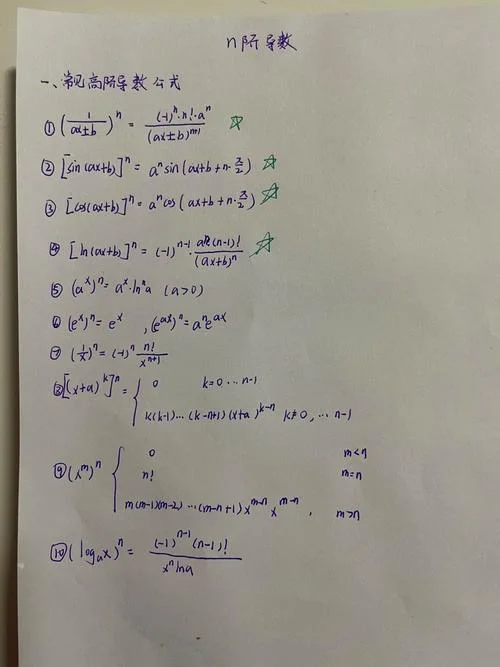 n阶导数
一、常见高阶导数公式
① (1/(ax±b))^n = ((-1)^n·n!·a^n)/((ax±b)^(n+1)) ☆
② [sin(ax+b)]^n = a^n sin(ax+b+n·π/2) ☆
③ [cos(ax+b)]^n = a^n cos(ax+b+n·π/2) ☆
④ [ln(ax+b)]^n = (-1)^(n-1)·(a^n(n-1)!)/((ax+b)^n) ☆
⑤ (a^x)^n = a^x·ln^n a (a>0)
⑥ (e^x)^n = e^x , (e^(ax))^n = a^n e^(ax)
⑦ (1/x)^n = (-1)^n n!/x^(n+1)
⑧ [(x+a)^k]^n = { 0 k=0…n-1
k(k-1)…(k-n+1)(x+a)^(k-n) k≠0,…n-1
⑨ (x^m)^n { 0 m<n
n! m=n
m(m-1)(m-2)…(m-n+1)x^(m-n) x^(m-n), m>n
⑩ (log_a x)^n = ((-1)^(n-1)(n-1)!)/(x^n ln a)